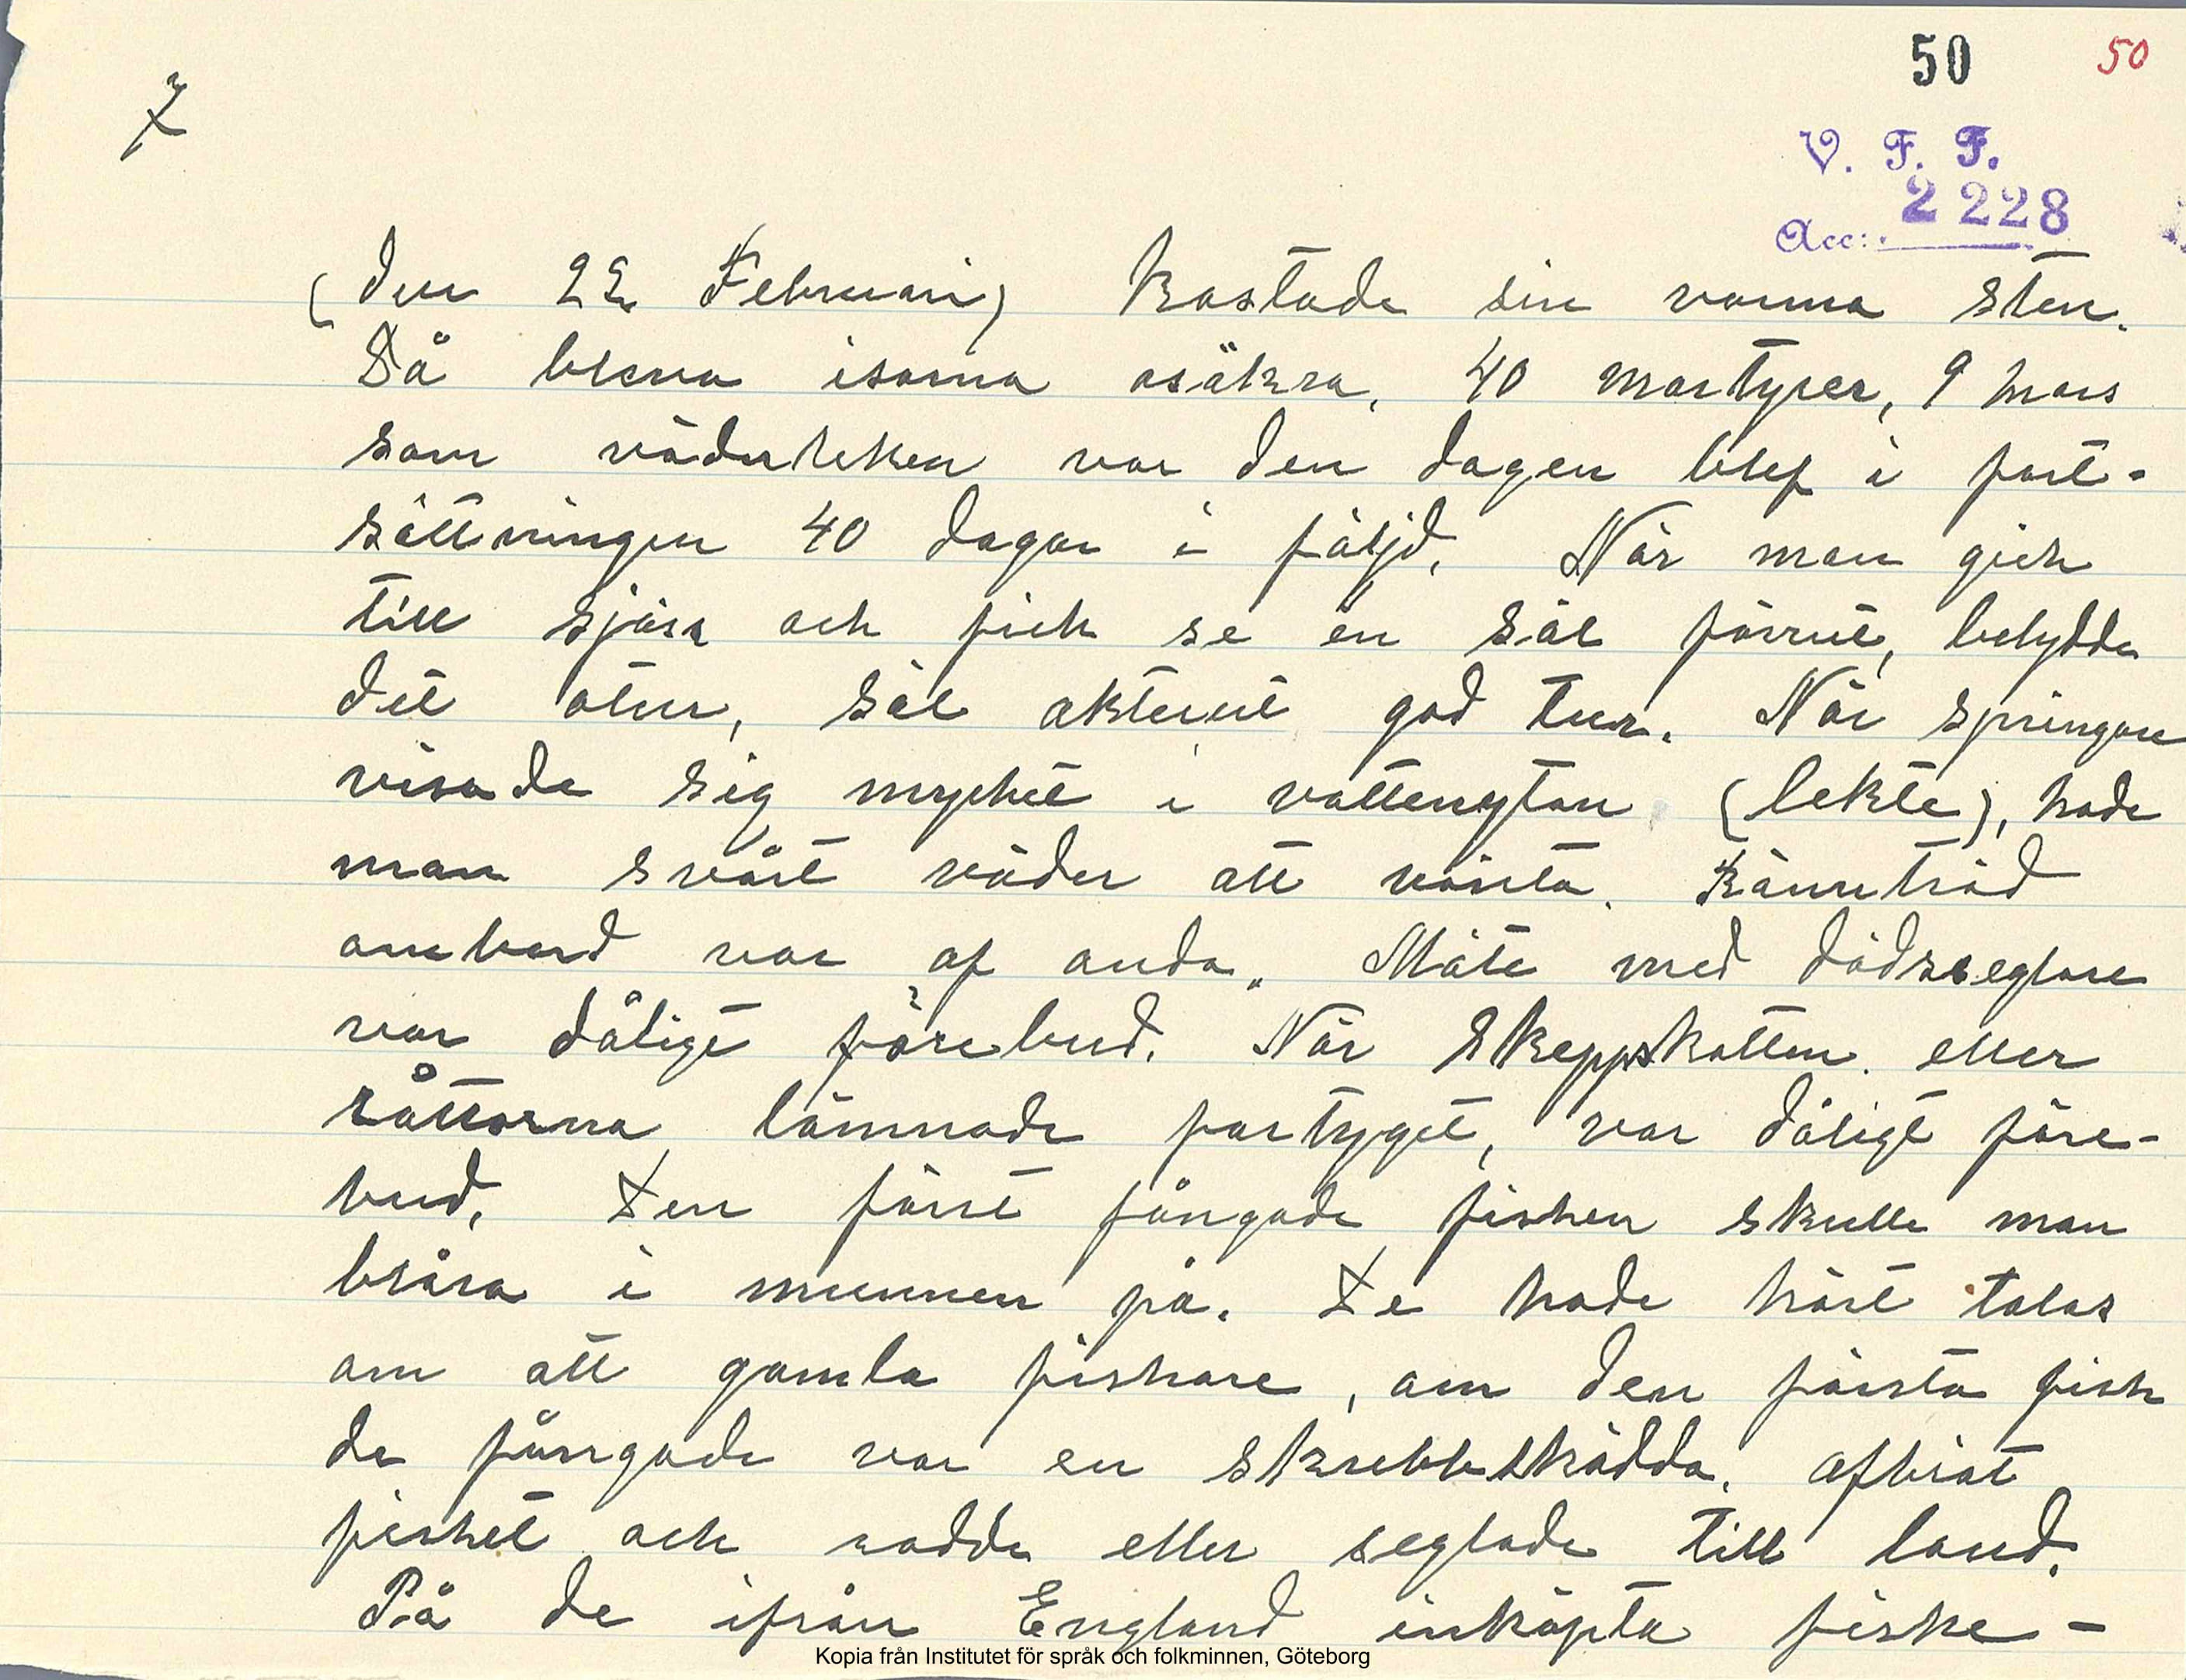 50 50
7
V. F. F.
Acc: 2228
(den 22 Februari) Kastade sin varma sten.
Då bleva isarna osäkra, 40 martyrer, 9 mars
som väderleken var den dagen blef i fort-
sättningen 40 dagar i följd. När man gick
till sjöss och fick se en säl förrut, betydde
det otur, säl akterut god tur. När springare
visade sig mycket i vattenytan (lekte), hade
man svårt väder att vänta.
ombord var af onda. Möte med dödsseglare
var dåligt förebud. När Skeppskatten eller
råttorna lämnade fartyget, var dåligt före-
bud, Den först fångade fisken skulle man
blåsa i munnen på. De hade hört talas
om att gamla fiskare, om den första fisk
de fångade var en skrubbskädda, afbröt
fisket och rodde eller seglade till land.
På de ifrån England inköpta fiske-
Kopia från Institutet för språk och folkminnen, Göteborg